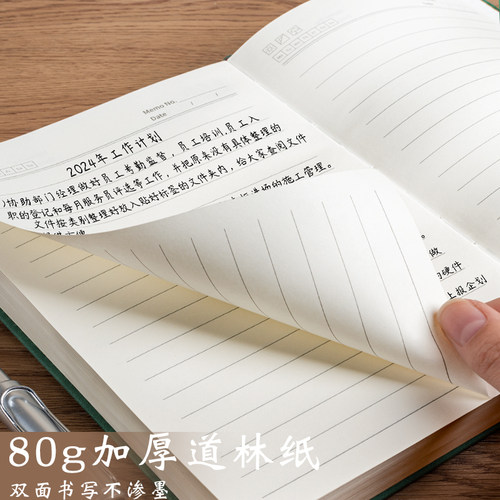 Memo No.
Date / /
2024年工作计划
协助部门经理做好员工考勤监督，员工培训，员工入
职的登记和每月服务员评选等工作，并把原来没有具体整理的
文件按类别整理好放入贴好标签的文件夹内，给大家查阅文件
的施工管理。
做
硬件
上报企划
80g加厚道林纸
双面书写不渗墨